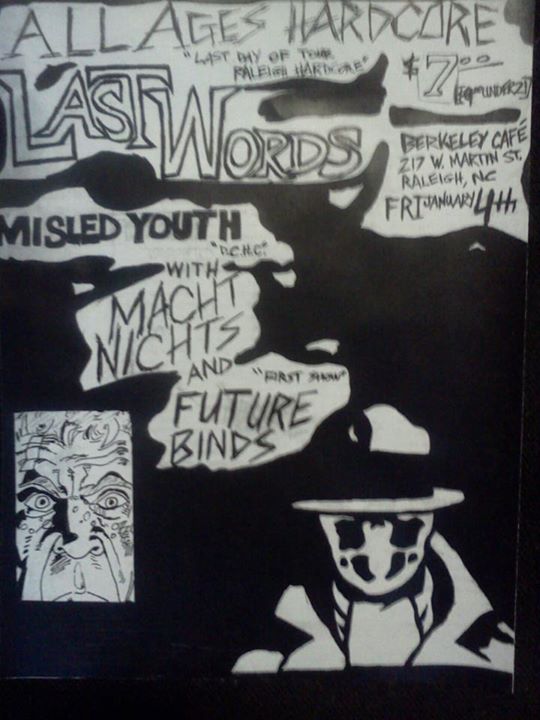 ALL AGES HARDCORE
"LAST DAY OF TOUR
RALEIGH HARDCORE"
$7.00
LAST WORDS
BERKELEY CAFÉ
217 W. MARTIN ST.
RALEIGH, NC
FRI JANUARY 4th
MISLED YOUTH
"D.C.H.C."
WITH
MACHT
NICHTS
AND
"FIRST SHOW"
FUTURE
BINDS